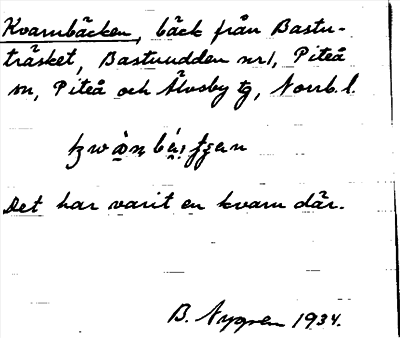 Kvarnbäcken, bäck från Bastu-
träsket, Bastuudden nr1, Piteå
sn, Piteå och Älvsby tg, Norrb. l.
Det har varit en kvarn där.
B. Nygren 1934.